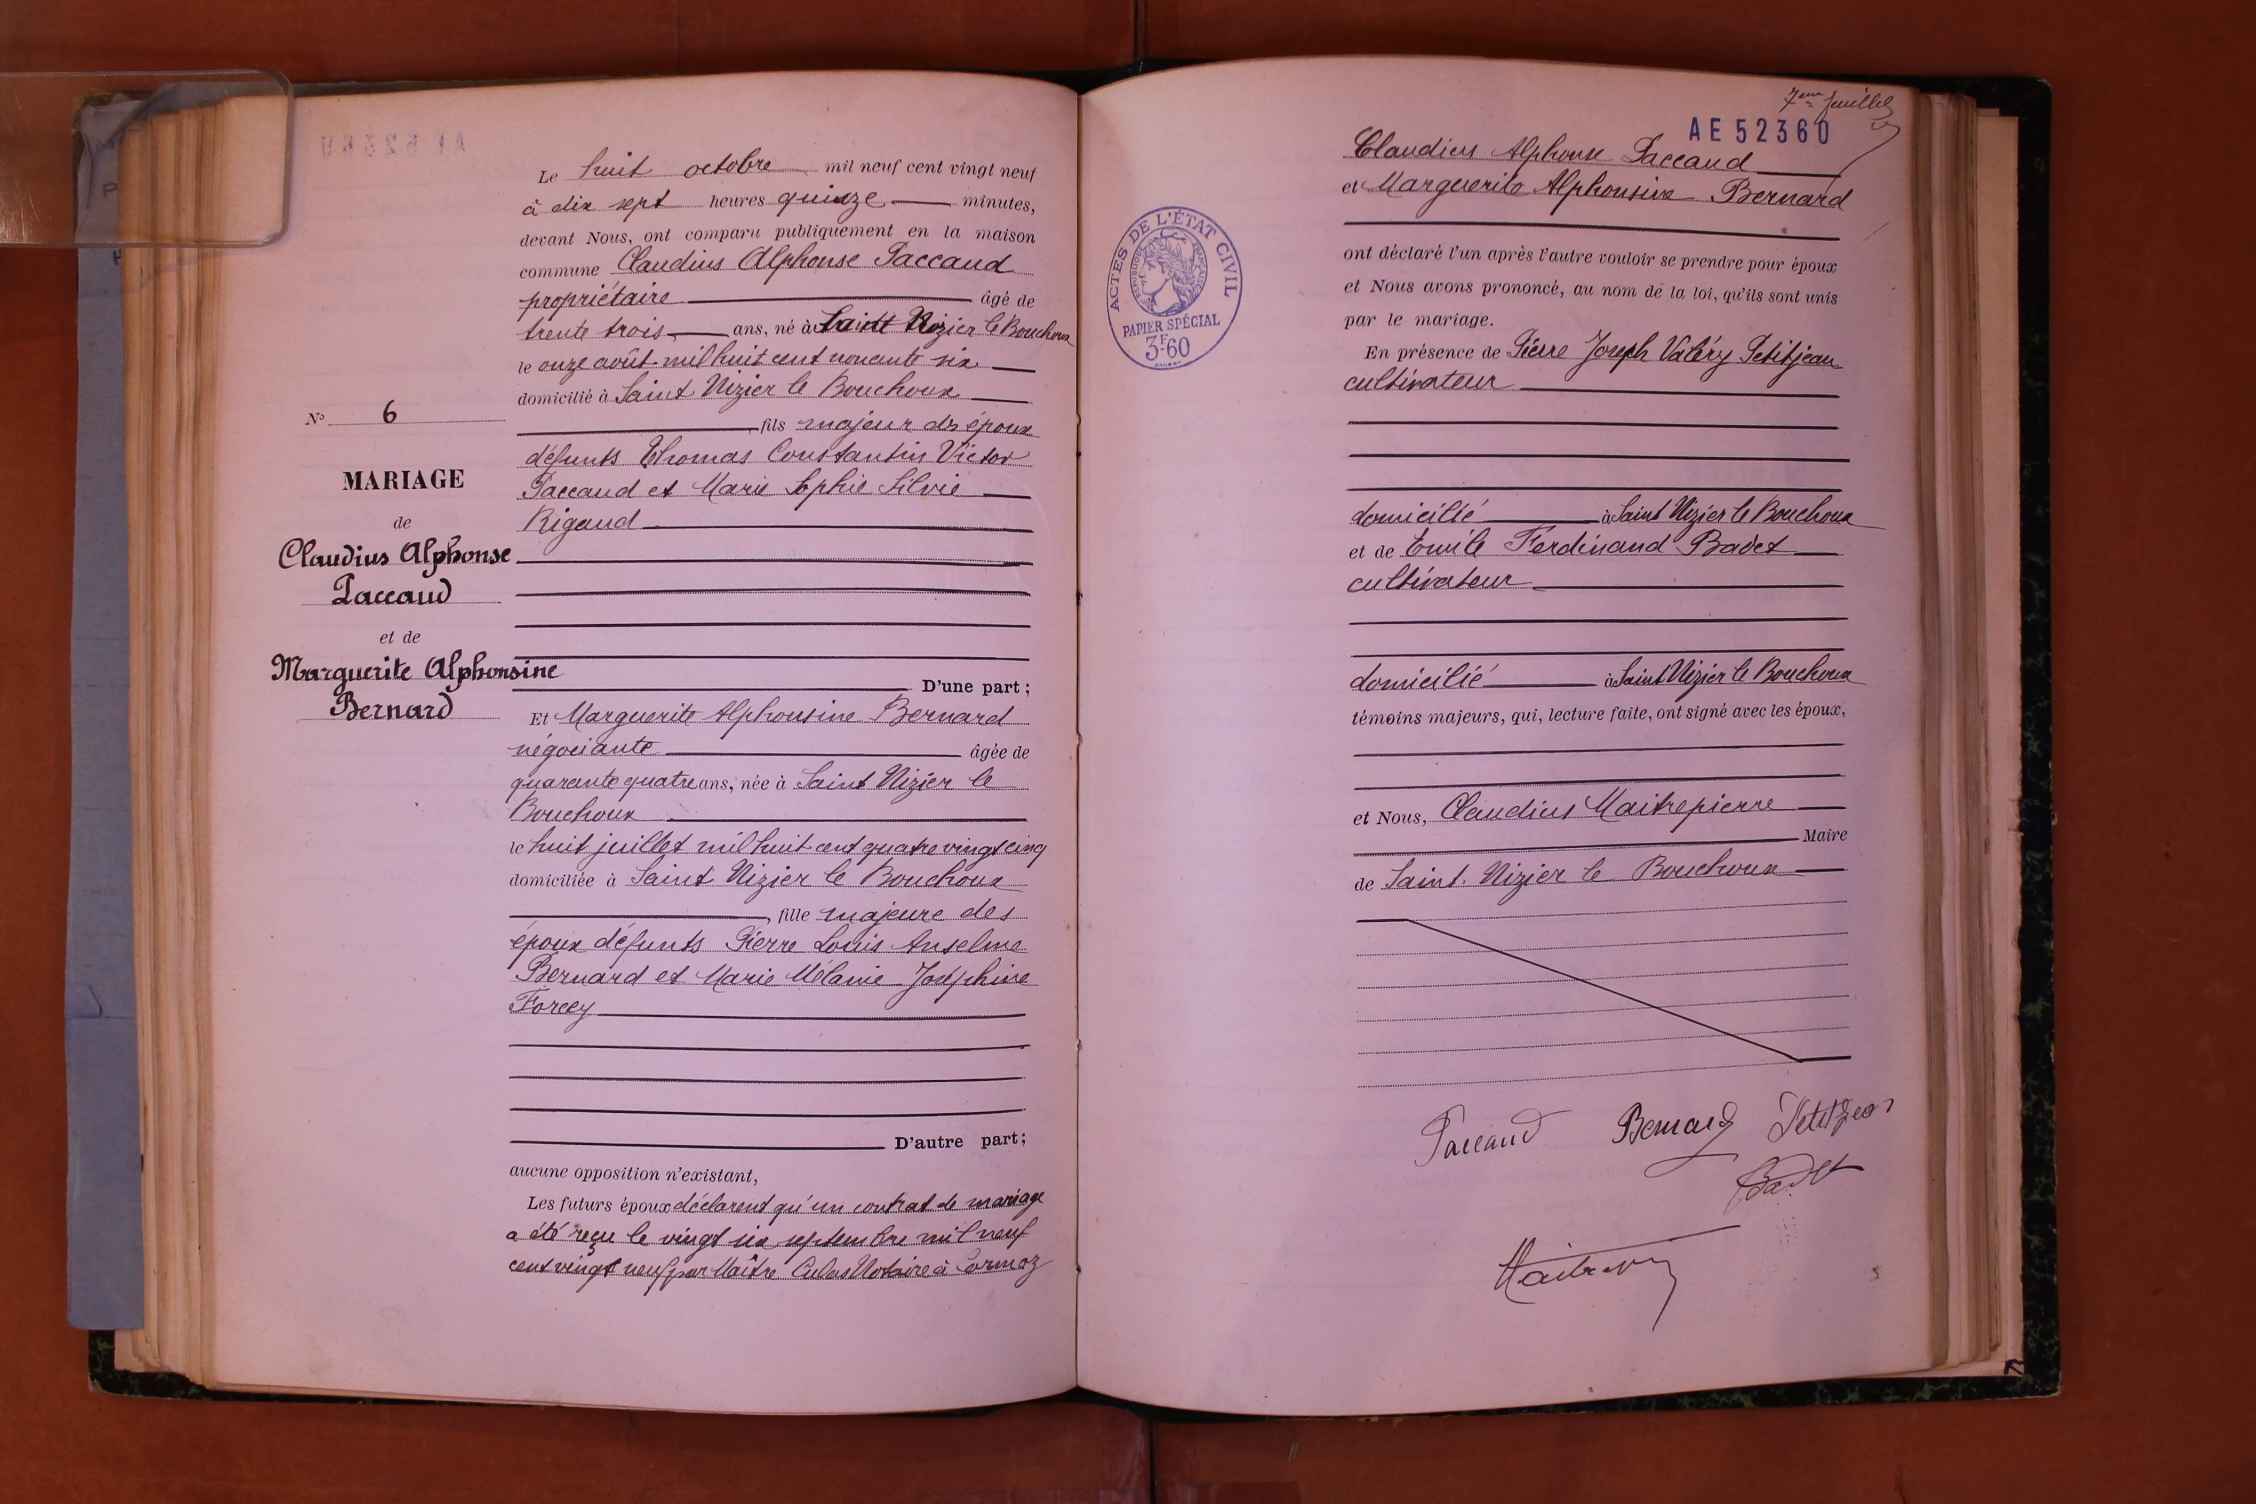 Nº 6
MARIAGE
de
Claudius Alphonse
Paccaud
et de
Marguerite Alphonsine
Bernard
Le huit octobre mil neuf cent vingt neuf
à dix sept heures quinze minutes,
devant Nous, ont comparu publiquement en la maison
commune Claudius Alphonse Paccaud
propriétaire âgé de
trente trois ans, né à Saint Nizier le Bouchoux
le onze août mil huit cent nonante six
domicilié à Saint Nizier le Bouchoux
fils majeur des époux
défunts Thomas Constantin Victor
Paccaud et Marie Sophie Silvie
Rigaud
D'une part ;
Et Marguerite Alphonsine Bernard
négociante âgée de
quarante quatre ans, née à Saint Nizier le
Bouchoux
le huit juillet mil huit cent quatre vingt cinq
domiciliée à Saint Nizier le Bouchoux
, fille majeure des
époux défunts Pierre Louis Anselme
Bernard et Marie Mélanie Joséphine
Forcey
D'autre part ;
aucune opposition n'existant,
Les futurs époux déclarent qu'un contrat de mariage
a été reçu le vingt six septembre mil neuf
cent vingt neuf par Maître Notaire à Cormoz
7eme feuillet
AE 52360
Claudius Alphonse Paccaud
et Marguerite Alphonsine Bernard
ACTES DE L'ÉTAT CIVIL
PAPIER SPÉCIAL
3F60
ont déclaré l'un après l'autre vouloir se prendre pour époux
et Nous avons prononcé, au nom de la loi, qu'ils sont unis
par le mariage.
En présence de Pierre Joseph Valéry Petitjean
cultivateur
domicilié à Saint Nizier le Bouchoux
et de Emile Ferdinand Badet
cultivateur
domicilié à Saint Nizier le Bouchoux
témoins majeurs, qui, lecture faite, ont signé avec les époux,
et Nous, Claudius Maitrepierre
Maire
de Saint Nizier le Bouchoux
Paccaud Bernard Petitjean
Badet